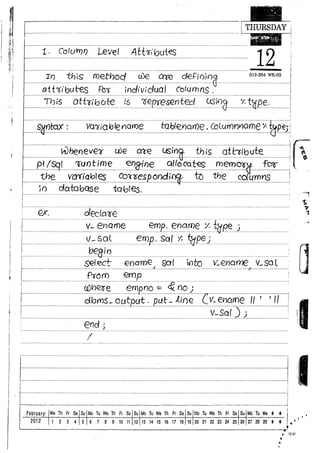 THURSDAY
12
012-354 WK-02
1. Column Level Attributes
In this method we are defining
attributes for individual columns.
This attribute is represented using %type.
Syntax: variablename tablename.columnname%type;
Whenever we are using this attribute
pl/sql runtime engine allocates memory for
the variables corresponding to the columns
in database tables.
ex. declare
v_ename emp.ename%type;
v_sal emp.sal%type;
begin
select ename, sal into v_ename, v_sal
from emp
where empno = &no;
dbms_output.put_line (v_ename || ' ' ||
v_sal);
end;
/
FEB
MAR
February We Th Fr Sa Su Mo Tu We Th Fr Sa Su Mo Tu We Th Fr Sa Su Mo Tu We Th Fr Sa Su Mo Tu We
2012 1 2 3 4 5 6 7 8 9 10 11 12 13 14 15 16 17 18 19 20 21 22 23 24 25 26 27 28 29